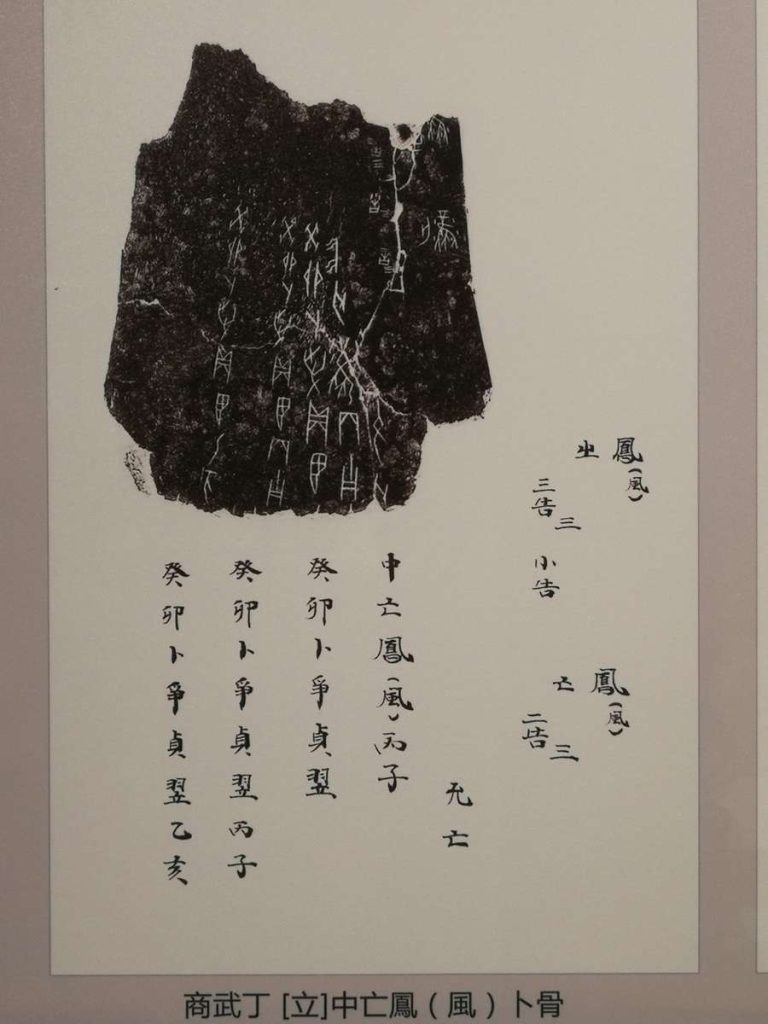 癸卯卜爭貞翌乙亥
癸卯卜爭貞翌丙子
癸卯卜爭貞翌
中亡鳳(風)丙子
允亡
㞢
鳳(風)
三告
三
小告
亡
鳳(風)
二告
三
商武丁 [立]中亡鳳（風）卜骨